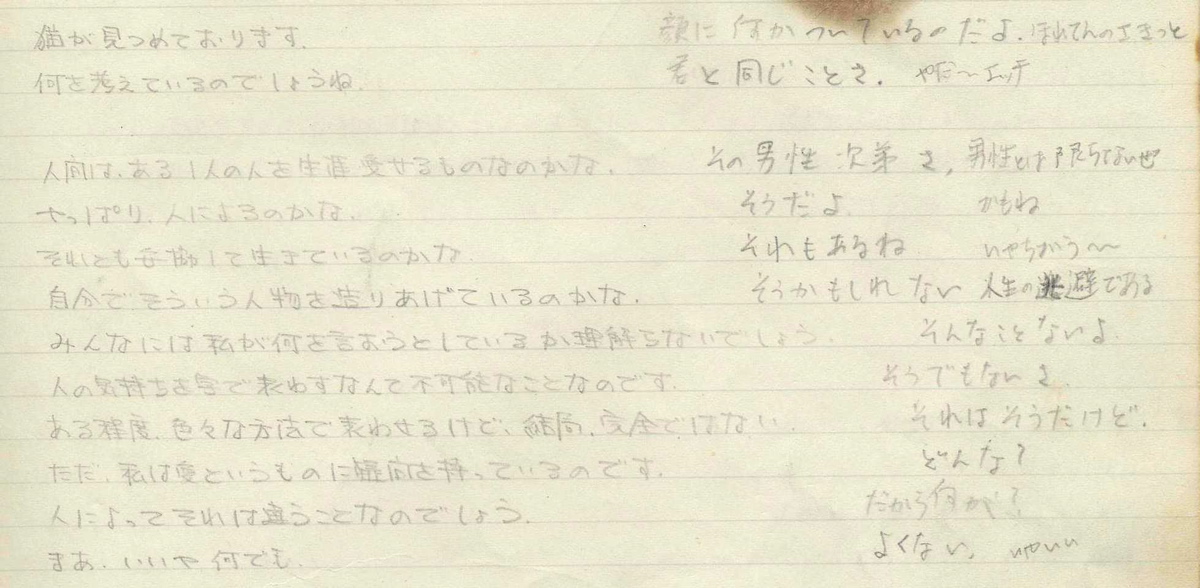 猫が見つめております。 顔に何かついているのだよ。ほれてんのさきっと
何を考えているのでしょうね。 君と同じことさ。 やだ〜エッチ
人間は、ある1人の人を生涯愛せるものなのかな。 その男性次第さ、男性とは限らないぜ
やっぱり、人によるのかな。 そうだよ。 かもね
それとも妥協して生きているのかな。 それもあるね。 いやちがう〜
自分でそういう人物を造りあげているのかな。 そうかもしれない 人生の逃避である
みんなには私が何を言おうとしているか理解らないでしょう。 そんなことないよ。
人の気持ちを字で表わすなんて不可能なことなのです。 そうでもないさ。
ある程度、色々な方法で表わせるけど、結局、完全ではない。 それはそうだけど。
ただ、私は愛というものに疑問を持っているのです。 どんな?
人によってそれは違うことなのでしょう。 だから何が?
まあ、いいや何でも。 よくない。 いやいい